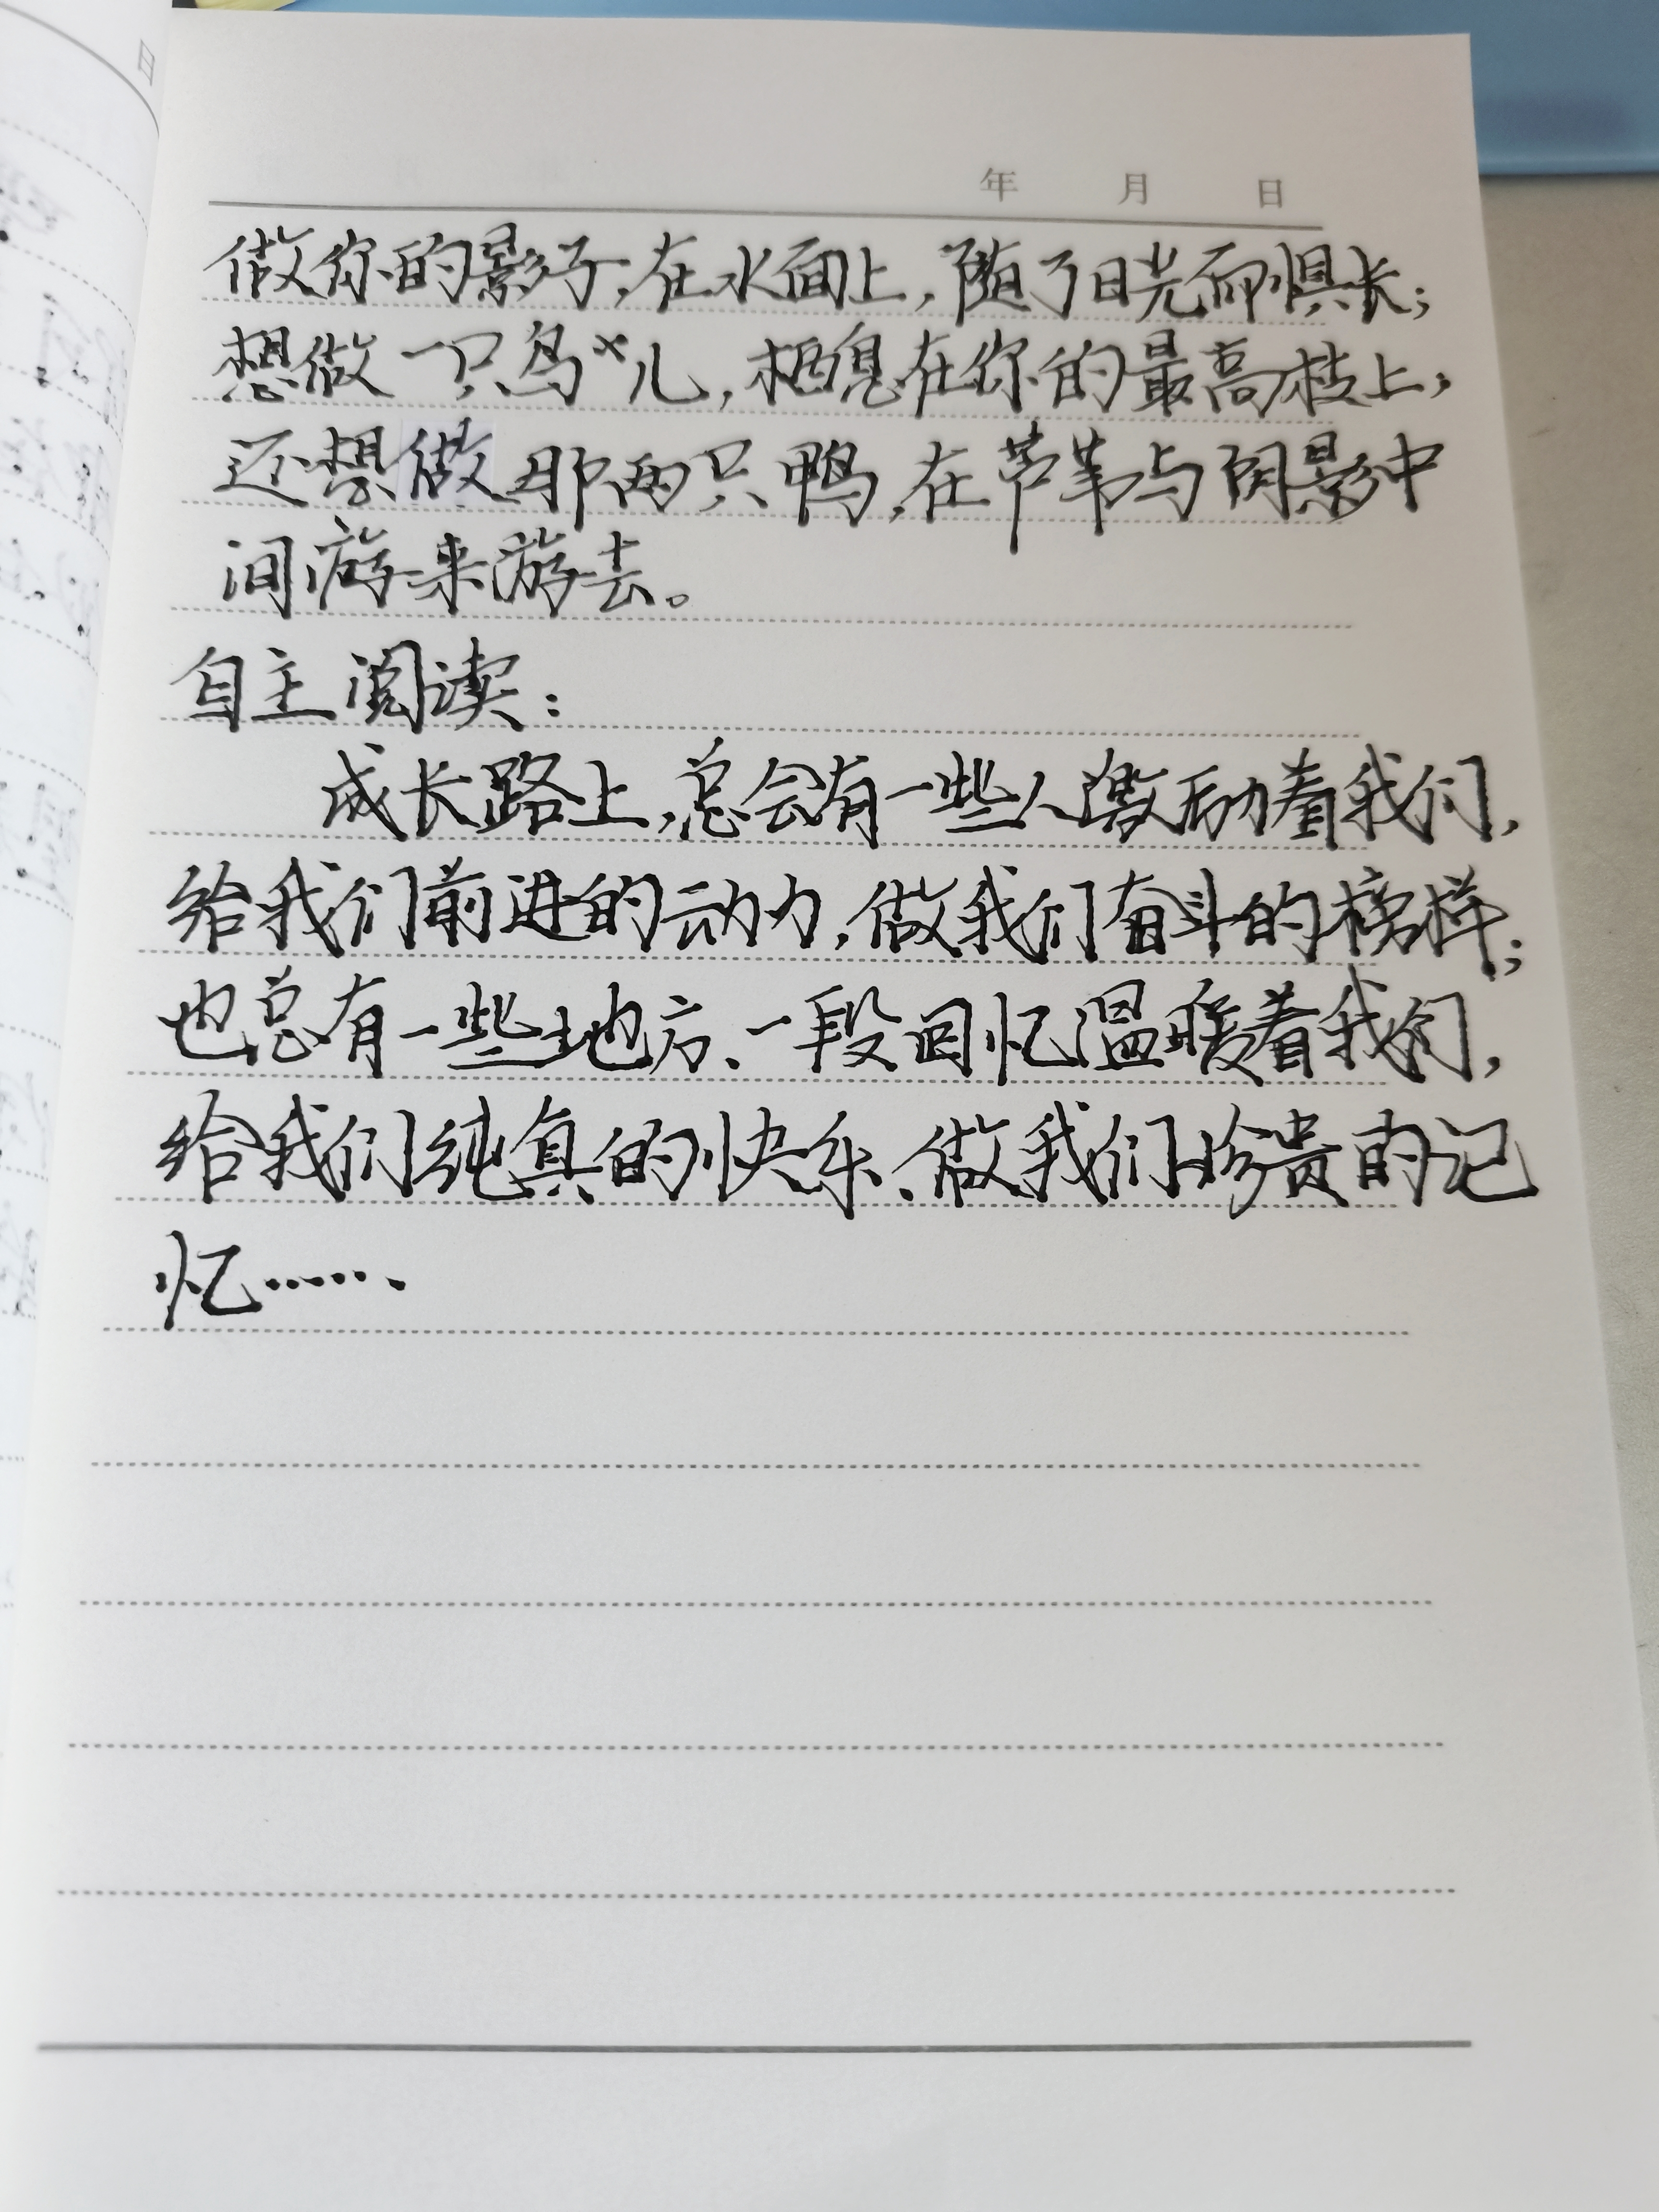 日
年 月 日
做你的影子,在水面上,随了日光而惧长;
想做一只鸟儿,栖息在你的最高枝上,
还想做那两只鸭,在芦苇与阴影中
间游来游去。
自主阅读:
成长路上,总会有一些人激励着我们,
给我们前进的动力,做我们奋斗的榜样;
也总有一些地方、一段回忆温暖着我们,
给我们纯真的快乐、做我们珍贵的记
忆……